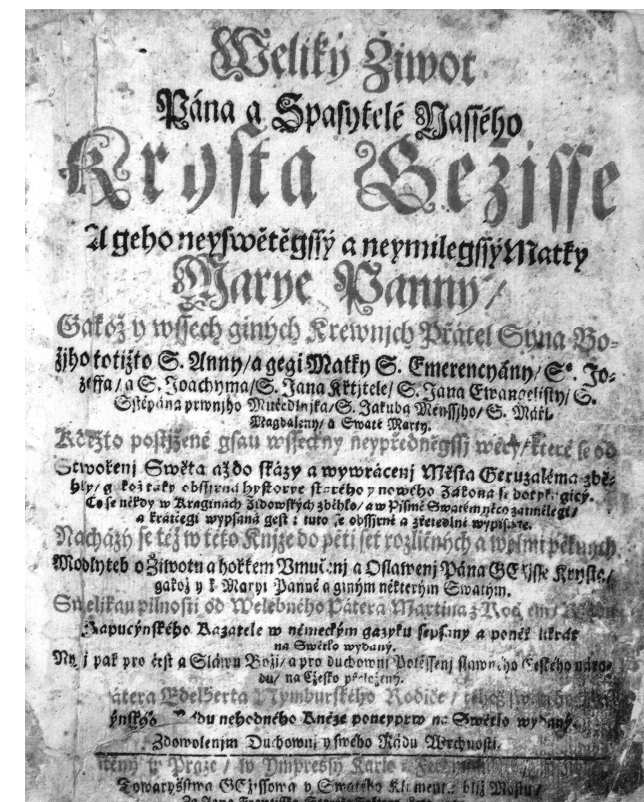 Weliký Žiwot
Pána a Spasytelě Nassého
Krysta Gežjsse
A geho neyswětěgssý a neymilegssý Matky
Marye Panny/
Gakož y wssech giných Krewnjch Přátel Syna Bo-
žjho totižto S. Anny/ a gegj Matky S. Emerencyány/ S°. Jo-
zeffa/ a S. Joachyma/ S. Jana Křtjtele/ S. Jana Ewangelisty/ S.
Sstěpána prwnjho Mučedlnjka/ S. Jakuba Menssjho/ S. Máří
Magdaleny/ a Swaté Marty.
postjžené gsau wssecky neypředněgssj wěcy/ které se od
Stwořenj Swěta až do skázy a wywrácenj Města Geruzaléma zbě-
hly/ taky obssyrná hystorye starého y nowého Zákona se
Co se někdy w Kraginách Židowských zběhlo/ a w Pjsmě Swatém něco zatmilegi/
a kratčegi wypsaná gest: tuto se obssyrně a zřetedlně wypisuge.
Nacházý se též w této Knjze do pěti set rozličných a welmi pěkných
Modlyteb o Žiwotu a hořkém Vmučenj a Oslawenj Pána GEžjsse Krysta/
gakož y k Maryi Panně a giným některým Swatým.
S welikau pilnostj od Welebného Pátera Martina z
Kapucýnského Kazatele w německým gazyku sepsaný a
na Swětlo wydaný.
pak pro čest a Sláwu Božj/ a pro duchownj Potěssenj slawného Českého náro-
du/ na Cžesko přeložený.
Edelberta Nymburského Rodiče/
nehodného Kněze poneyprw na Swětlo wydaný.
Z dowolenjm Duchownj y swého Ržádu Wrchnosti.
w Praze/ w Ympressy Karlo
Towaryšstwa GEžissowa v Swatého Klimenta bljž Mostu/